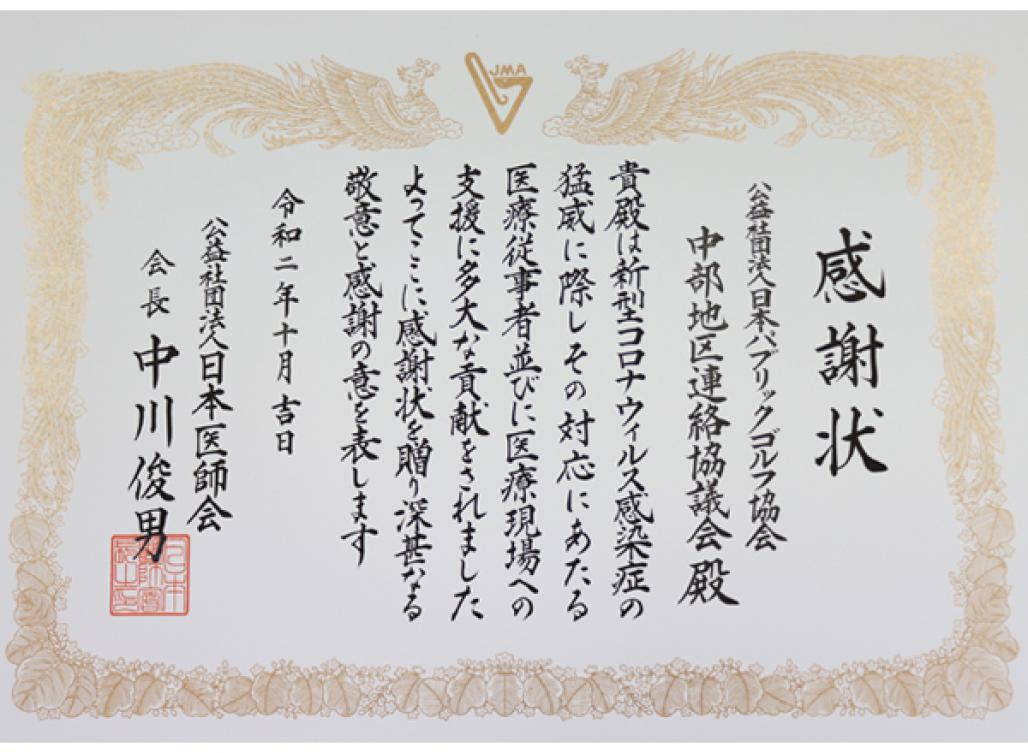 JMA
感謝状
公益社団法人日本パブリックゴルフ協会
中部地区連絡協議会殿
貴殿は新型コロナウィルス感染症の
猛威に際しその対応にあたる
医療従事者並びに医療現場への
支援に多大な貢献をされました
よってここに感謝状を贈り深甚なる
敬意と感謝の意を表します
令和二年十月吉日
公益社団法人日本医師会
会長 中川俊男